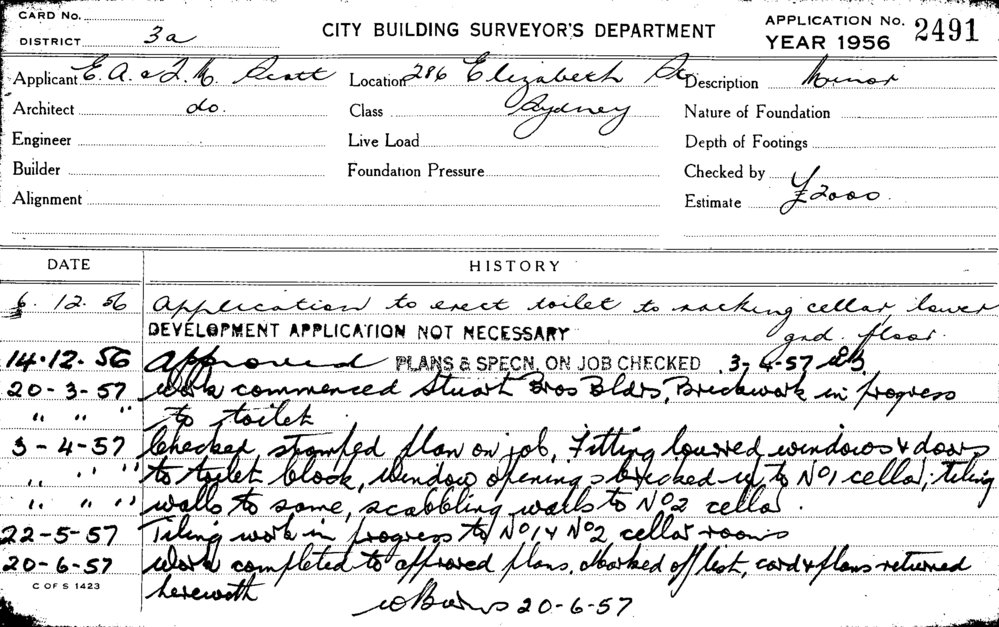 CARD No.
DISTRICT 3a
CITY BUILDING SURVEYOR'S DEPARTMENT
APPLICATION No. 2491
YEAR 1956
Applicant E. A. & J. M. Scott
Location 286 Elizabeth St
Description Minor
Architect do.
Class Sydney
Nature of Foundation
Engineer
Live Load
Depth of Footings
Builder
Foundation Pressure
Checked by
Alignment
Estimate £2000
DATE HISTORY
6. 12. 56 Application to erect toilet to racking cellar, lower
DEVELOPMENT APPLICATION NOT NECESSARY grd. floor.
14.12.56 Approved PLANS & SPECN. ON JOB CHECKED 3-4-57
20-3-57 Work commenced Stuart Bros Bldrs, Brickwork in progress
" " " to toilet
3-4-57 Checked, stamped plan on job, Fitting louvred windows & doors
" " " to toilet block, window openings bricked up to No1 cellar, tiling
" " " walls to same, scabbling walls to No2 cellar.
22-5-57 Tiling work in progress to No1 & No2 cellar rooms
20-6-57 Work completed to approved plans. Marked off list, card & plans returned
C OF S 1423
herewith
20-6-57